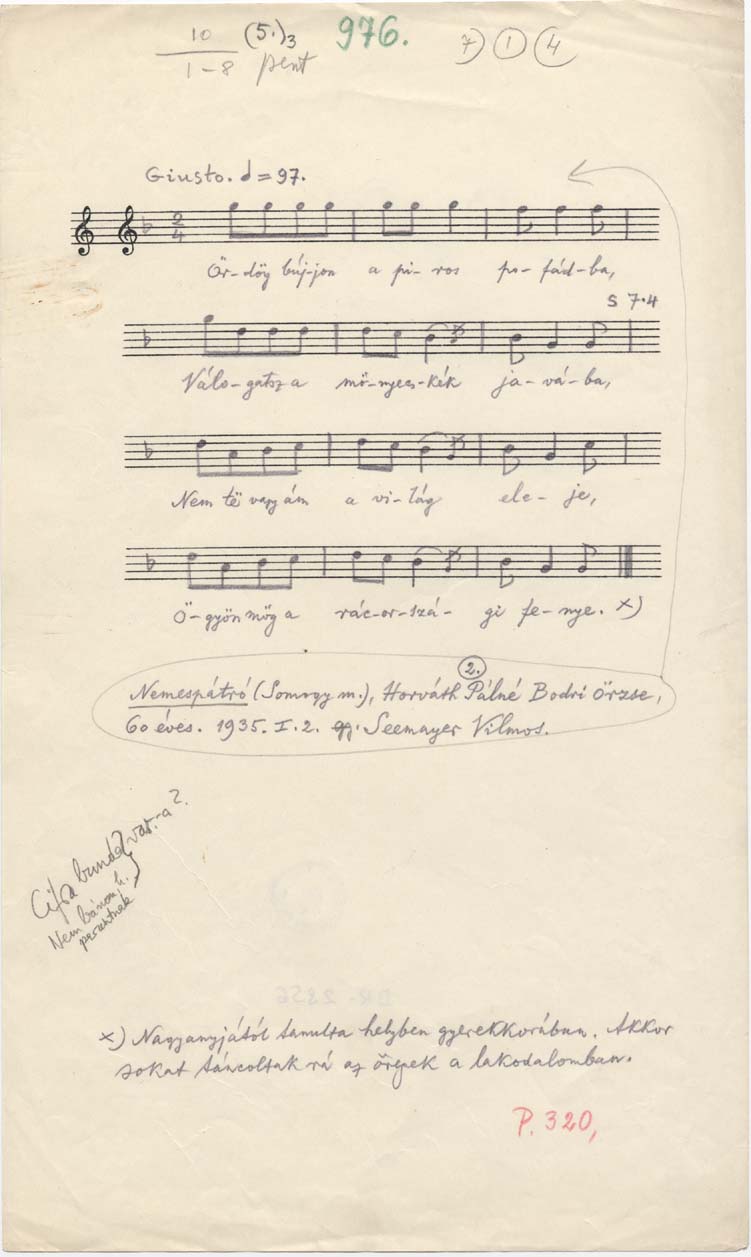 10 (5.)3 976. 7) 1 4
1-8 pent
Giusto. ♩=97.
2
4
Ör-dög búj-jon a pi-ros po-fád-ba,
S 7.4
Válo-gatsz a mö-nyecs-kék ja-vá-ba,
Nem të vagy ám a vi-lág ele-je,
Ö-gyön mög a rác-or-szá-gi fe-nye. x)
2.
Nemespátró (Somogy m.), Horváth Pálné Bodri Örzse,
60 éves. 1935. I. 2. gy. Seemayer Vilmos.
Cifra bundá var.-a?
Nem bánom, h.
x) Nagyanyjától tanulta helyben gyerekkorában. Akkor
sokat táncoltak rá az öregek a lakodalomban.
P. 320,